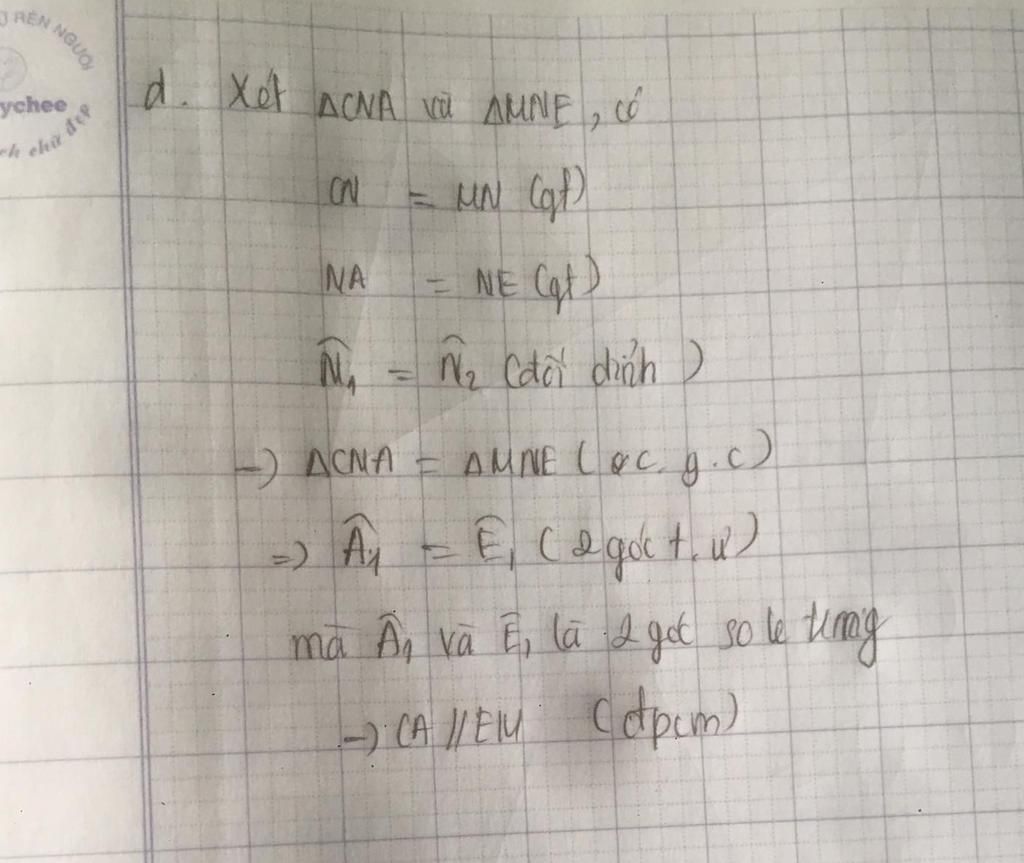 Ự RÈN NGƯỜI
ychee
ch chữ đẹp
d. Xét ΔCNA và ΔMNE, có
CN = MN (gt)
NA = NE (gt)
N̂₁ = N̂₂ (đối đỉnh)
→ ΔCNA = ΔMNE (c.g.c)
=> Â₁ = Ê₁ (2 góc t.ư)
mà Â₁ và Ê₁ là 2 góc so le trong
→ CA // EM (đpcm)